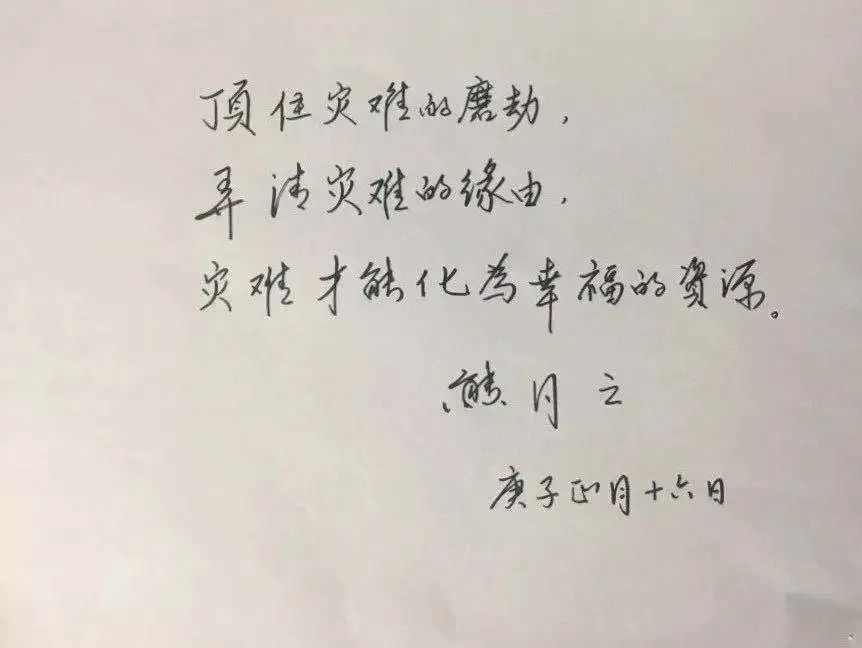 顶住灾难的磨劫，
弄清灾难的缘由，
灾难才能化為幸福的资源。
熊月之
庚子正月十六日